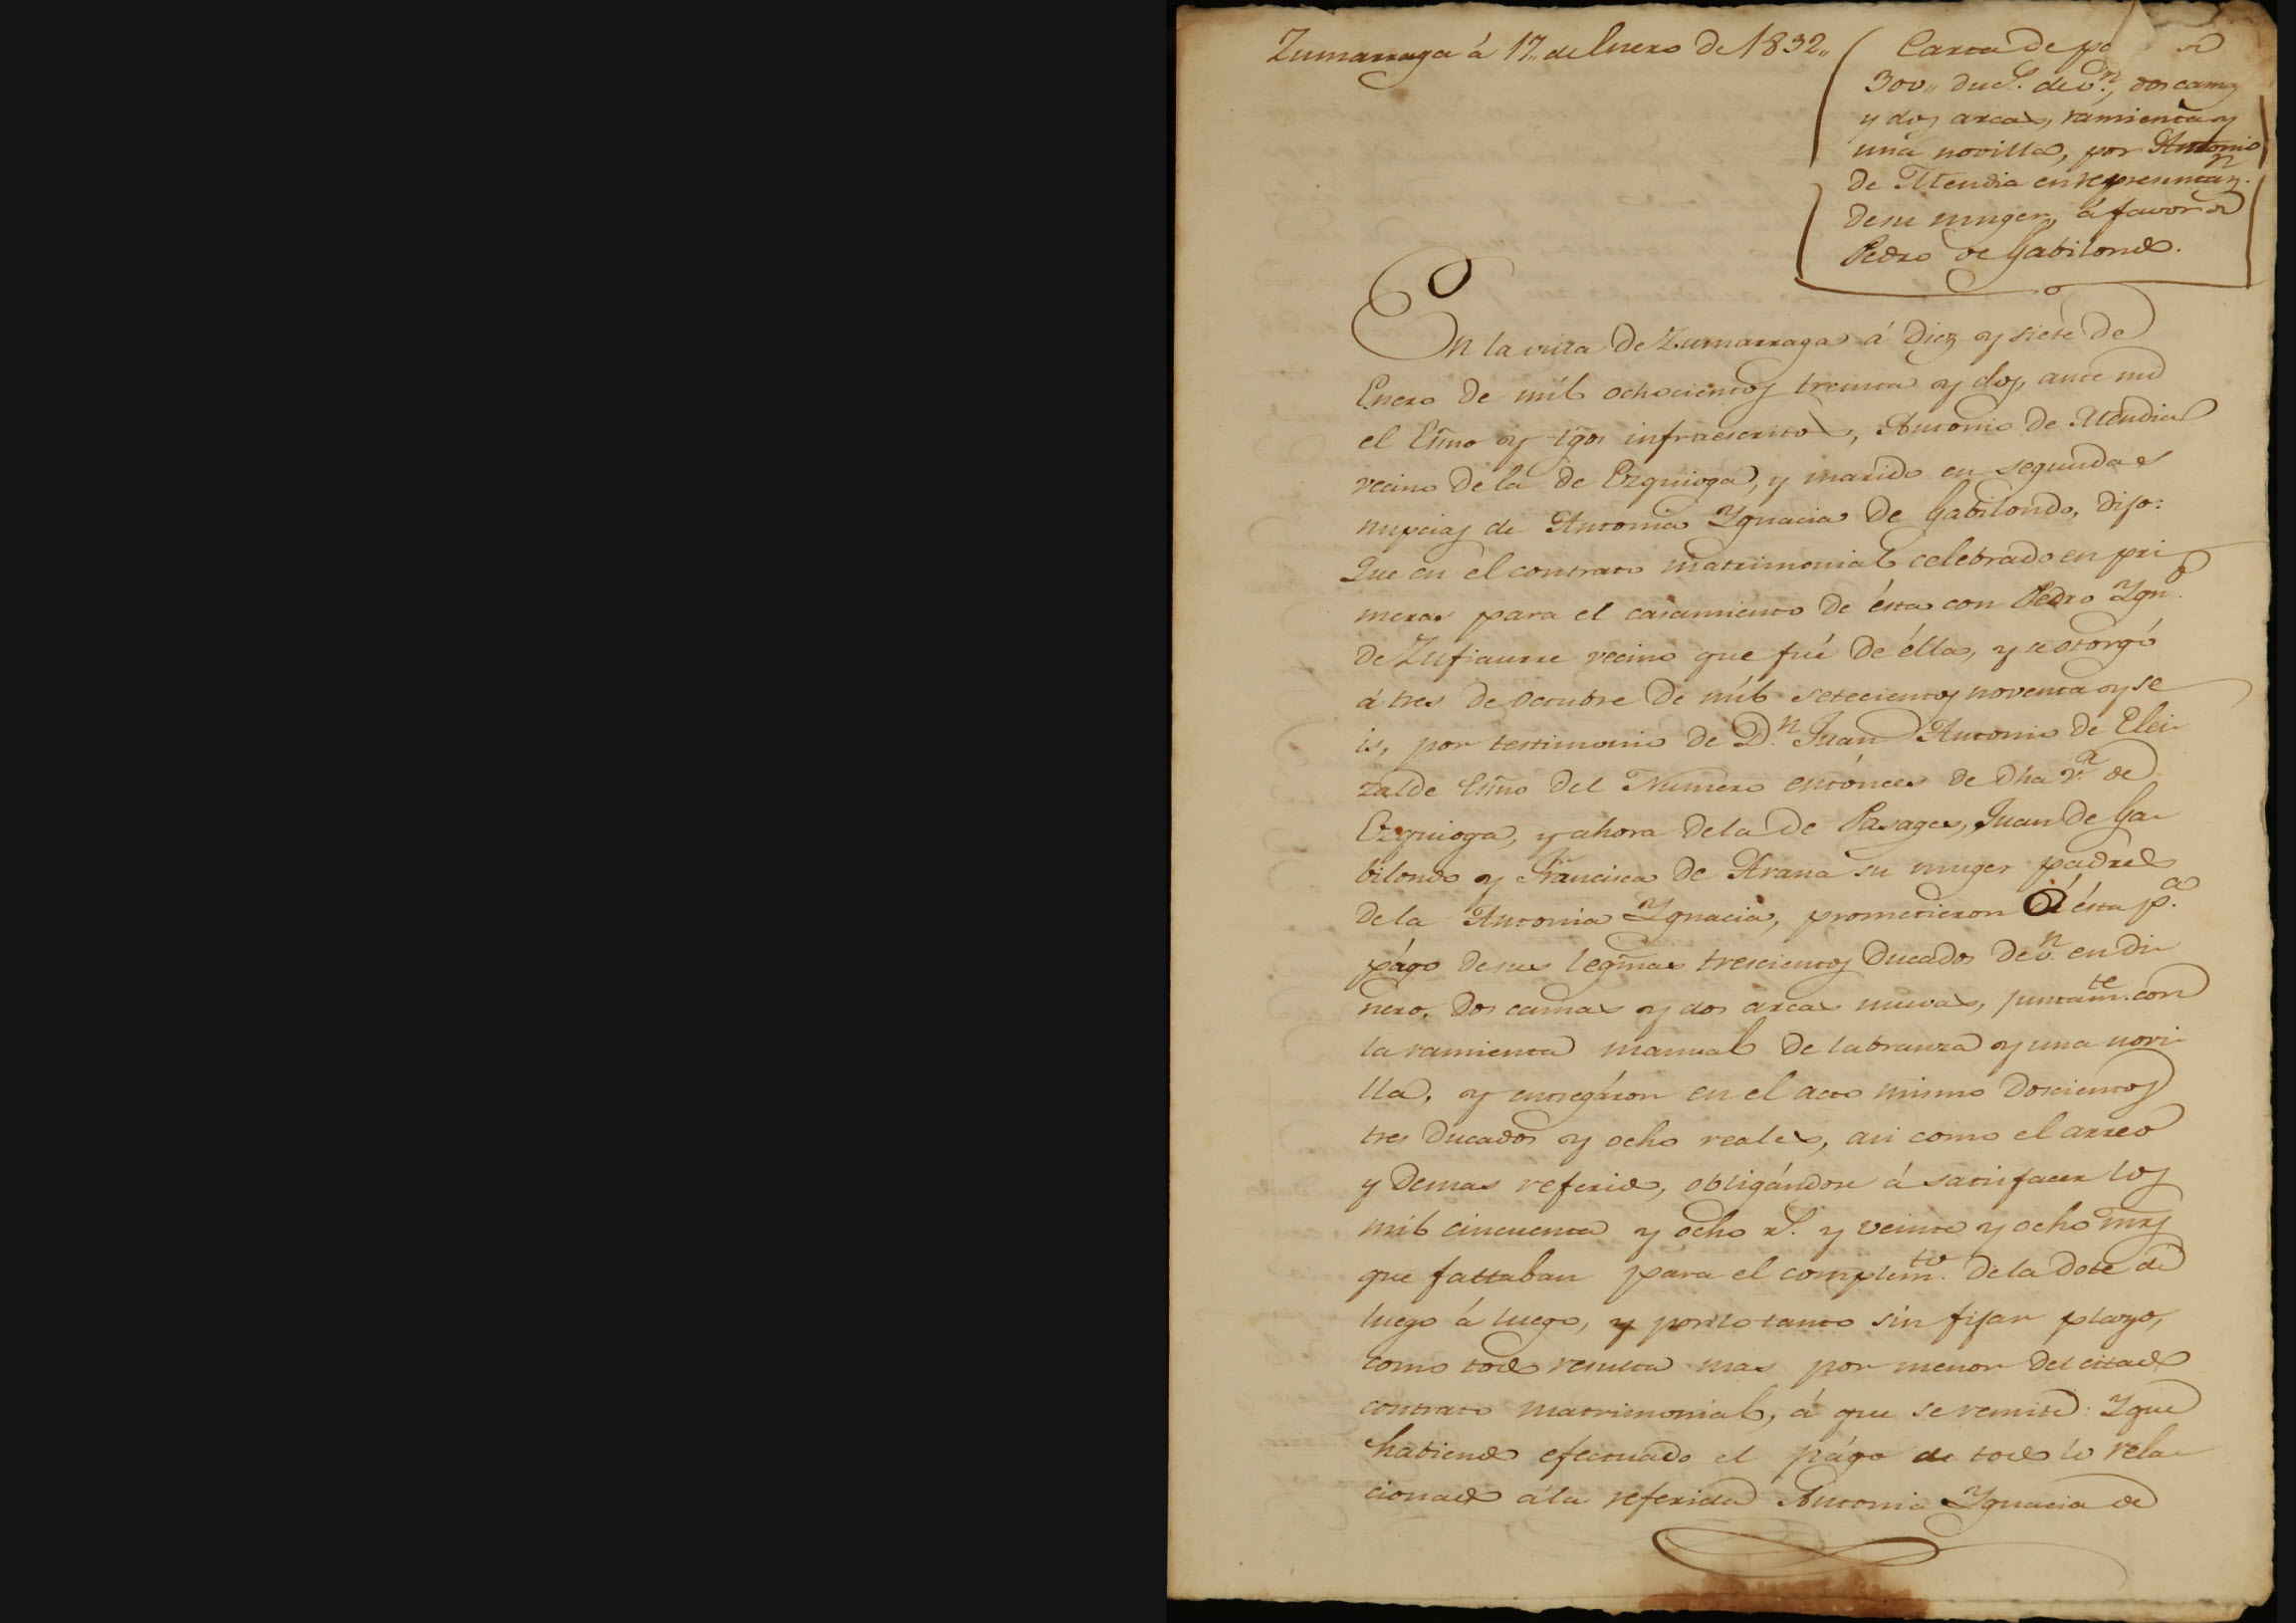 Zumarraga á 17,, de Enero de 1832,,
Carta de pa
300,, duc.s de v.n, dos camas
y dos arcas, ramienta y
una novilla, por Antonio
de Mendia en representaz.n
de su muger, á favor de
Pedro de Gabilondo.
En la villa de Zumarraga á diez y siete de
Enero de mil ochocientos treinta y dos, ante mi
el Esñno y tgos infraescritos, Antonio de Mendia
vecino de la de Ezquioga, y marido en segundas
nupcias de Antonia Ygnacia de Gabilondo, dijo:
Que en el contrato matrimonial celebrado en pri
meras para el casamiento de ésta con Pedro Ygn.o
de Zufiaurre vecino que fué de élla, y se otorgó
á tres de Octubre de mil setecientos noventa y se
is, por testimonio de D.n Juan Antonio de Elei-
zalde Esñno del Numero entónces de dha v.a de
Ezquioga, y ahora de la de Pasages, Juan de Ga-
bilondo y Francisca de Arana su muger padres
de la Antonia Ygnacia, prometieron á ésta p.a
págo de sus legmas trescientos Ducados de v.n en di-
nero, dos camas y dos arcas nuevas, juntam.te con
la ramienta manual de labranza y una novi-
lla, y entregáron en el acto mismo doscientos
tres Ducados y ocho reales, asi como el arreo
y demas referido, obligándose á satisfacer los
mil cincuenta y ocho r.s y veinte y ocho mrs
que faltaban para el complem.to de la dote de
luego á luego, y por lo tanto sin fijar plazo,
como todo resulta mas por menor del citado
contrato matrimonial, á que se remite: Y que
habiendo efectuado el págo de todo lo rela-
cionado á la referida Antonia Ygnacia de